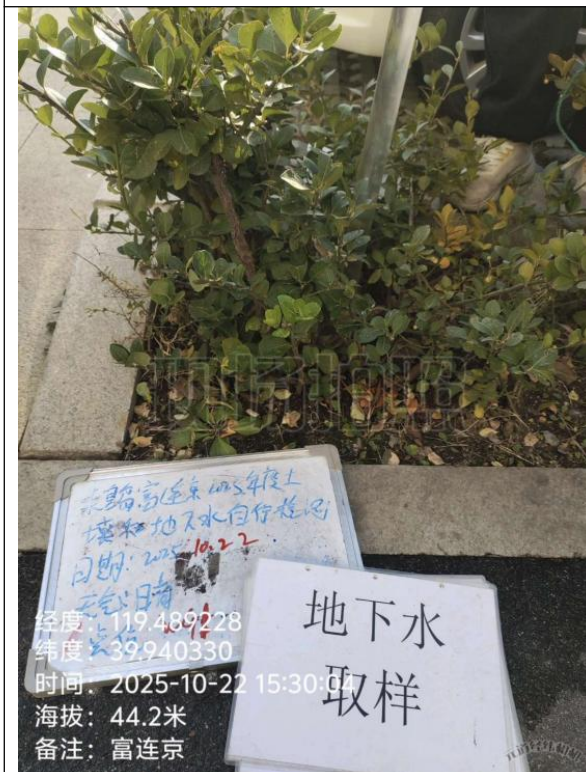 现场拍照
富连京2025年度土
壤和地下水自行检测
日期：2025.10.22.
天气：晴
点位
地下水
取样
经度：119.489228
纬度：39.940330
时间：2025-10-22 15:30:04
海拔：44.2米
备注：富连京